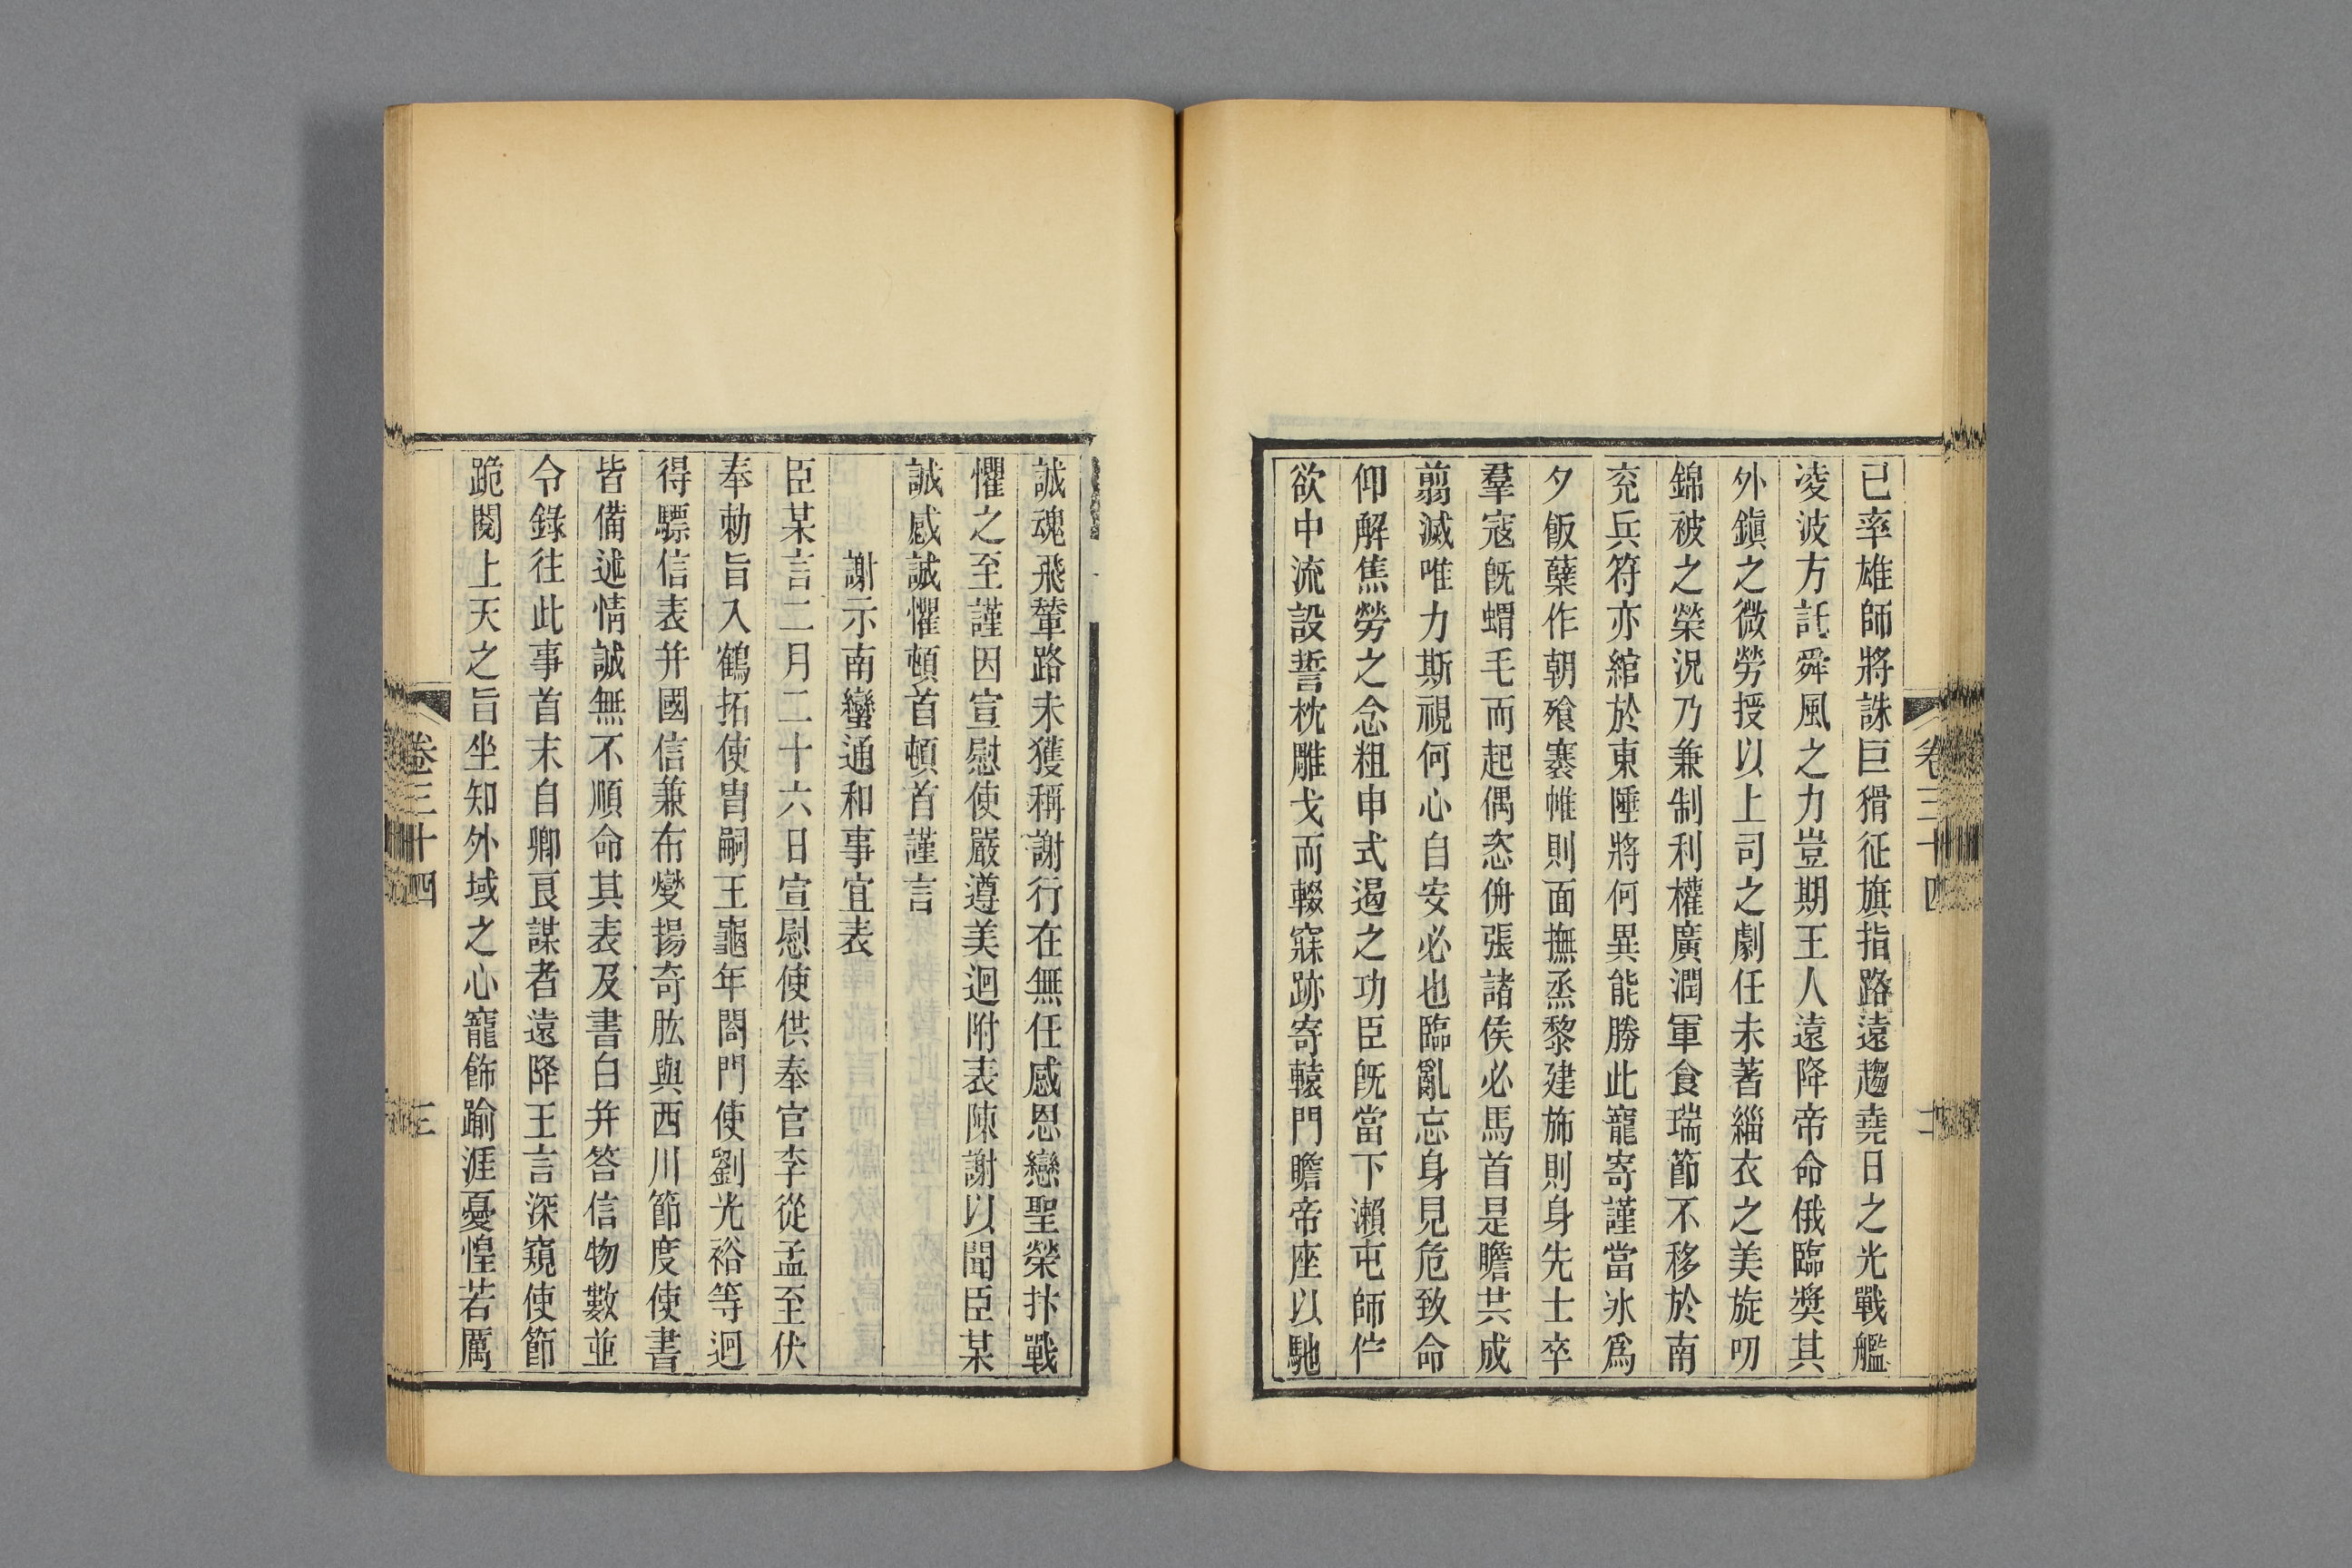 已率雄師將誅巨猾征旗指路遠趨堯日之光戰艦
凌波方託舜風之力豈期王人遠降帝命俄臨獎其
外鎮之微勞授以上司之劇任未著緇衣之美旋叨
錦被之榮況乃兼制利權廣潤軍食瑞節不移於南
兖兵符亦綰於東陲將何異能勝此寵寄謹當氷爲
夕飯蘗作朝飱褰帷則面撫烝黎建斾則身先士卒
羣寇旣蝟毛而起偶恣侜張諸侯必馬首是瞻共成
翦滅唯力斯視何心自安必也臨亂忘身見危致命
仰解焦勞之念粗申式遏之功臣旣當下瀨屯師伫
欲中流設誓枕雕戈而輟寐跡寄轅門瞻帝座以馳
卷三十四
二
誠魂飛輦路未獲稱謝行在無任感恩戀聖榮抃戰
懼之至謹因宣慰使嚴遵美迴附表陳謝以聞臣某
誠感誠懼頓首頓首謹言
謝示南蠻通和事宜表
臣某言二月二十六日宣慰使供奉官李從孟至伏
奉勅旨入鶴拓使冑嗣王龜年閤門使劉光裕等迴
得驃信表幷國信兼布燮揚奇肱與西川節度使書
皆備述情誠無不順命其表及書白幷答信物數並
令錄往此事首末自卿良謀者遠降王言深窺使節
跪閱上天之旨坐知外域之心寵飾踰涯憂惶若厲
卷三十四
三